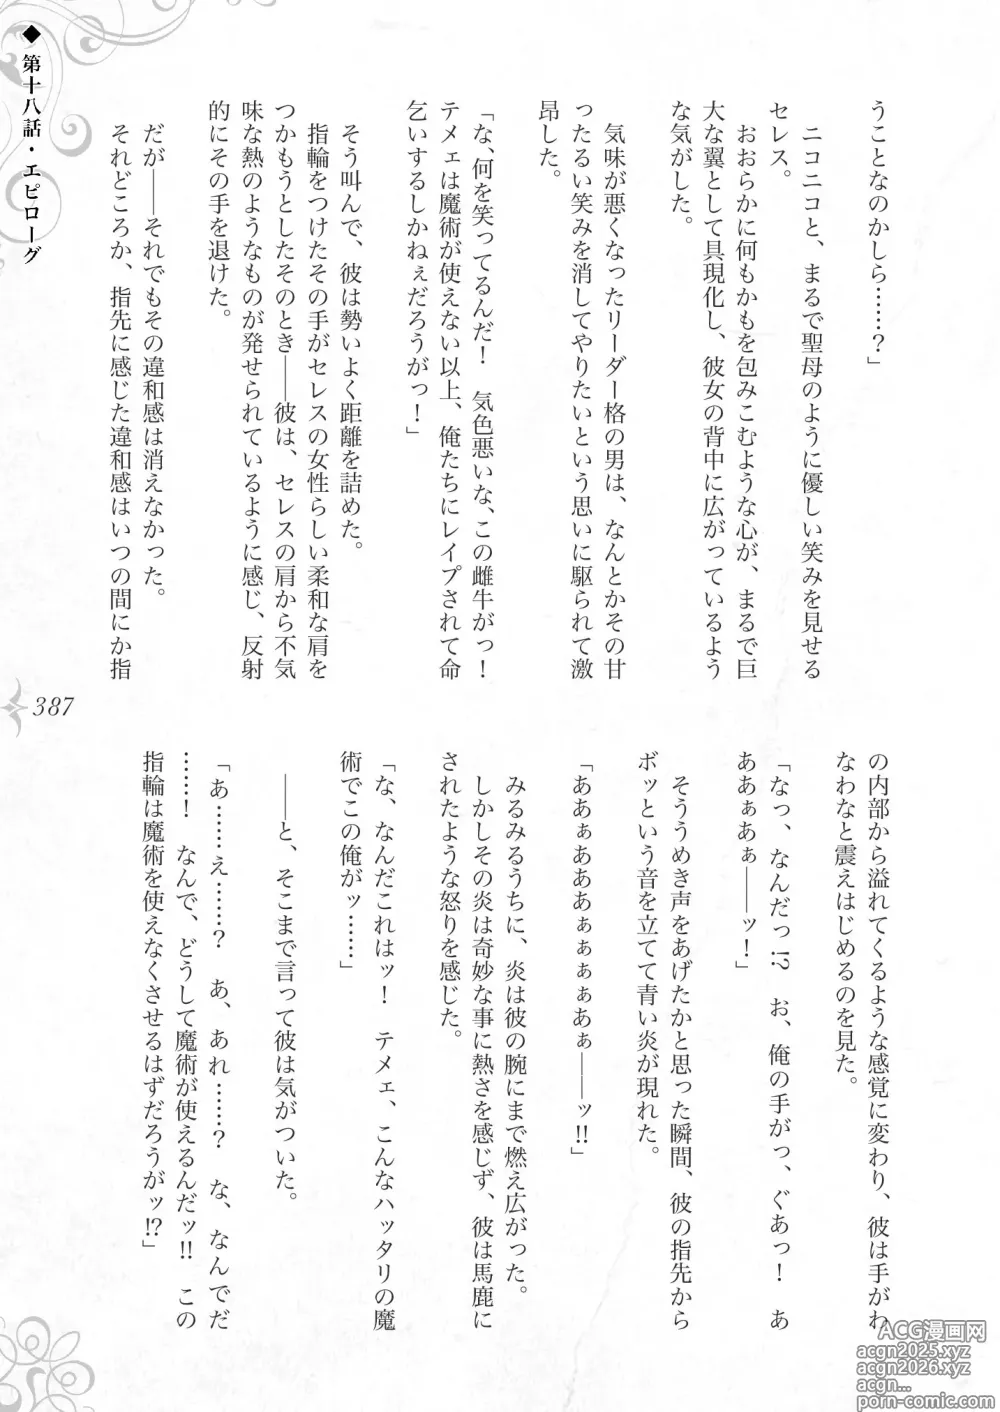 ◆ 第十八話・エピローグ
うことなのかしら……？」
ニコニコと、まるで聖母のように優しい笑みを見せる
セレス。
おおらかに何もかもを包みこむような心が、まるで巨
大な翼として具現化し、彼女の背中に広がっているよう
な気がした。
気味が悪くなったリーダー格の男は、なんとかその甘
ったるい笑みを消してやりたいという思いに駆られて激
昂した。
「な、何を笑ってるんだ！　気色悪いな、この雌牛がっ！
テメェは魔術が使えない以上、俺たちにレイプされて命
乞いするしかねぇだろうがっ！」
そう叫んで、彼は勢いよく距離を詰めた。
指輪をつけたその手がセレスの女性らしい柔和な肩を
つかもうとしたそのとき――彼は、セレスの肩から不気
味な熱のようなものが発せられているように感じ、反射
的にその手を退けた。
だが――それでもその違和感は消えなかった。
それどころか、指先に感じた違和感はいつの間にか指
の内部から溢れてくるような感覚に変わり、彼は手がわ
なわなと震えはじめるのを見た。
「なっ、なんだっ!?　お、俺の手がっ、ぐあっ！　あ
ああぁあぁ――ッ！」
そううめき声をあげたかと思った瞬間、彼の指先から
ボッという音を立てて青い炎が現れた。
「ああぁあああぁぁぁぁあぁ――ッ!!」
みるみるうちに、炎は彼の腕にまで燃え広がった。
しかしその炎は奇妙な事に熱さを感じず、彼は馬鹿に
されたような怒りを感じた。
「な、なんだこれはッ！　テメェ、こんなハッタリの魔
術でこの俺がッ……」
――と、そこまで言って彼は気がついた。
「あ……え……？　あ、あれ……？　な、なんでだ
……！　なんで、どうして魔術が使えるんだッ!!　この
指輪は魔術を使えなくさせるはずだろうがッ!?」
387
ACG漫画网
acgn2025.xyz
acgn2026.xyz
acgn...
porn-comic.com